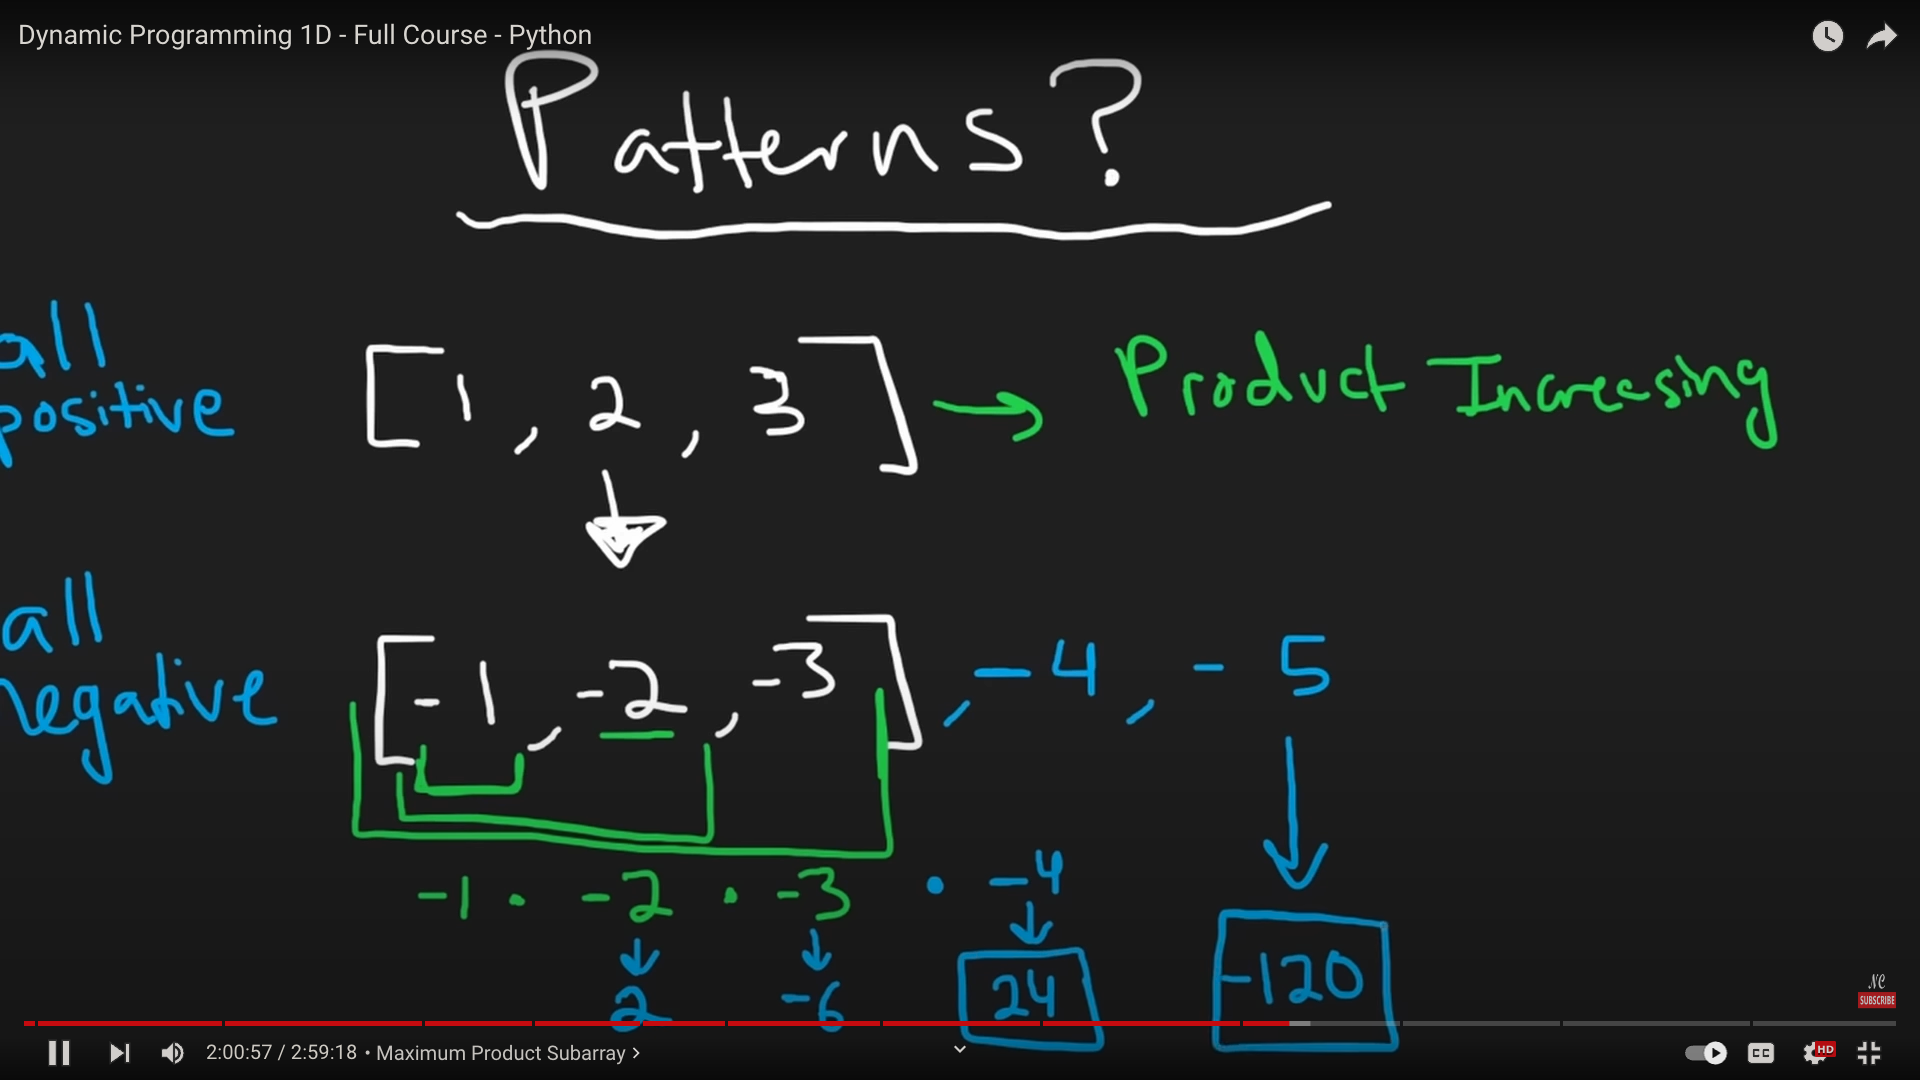 Dynamic Programming 1D - Full Course - Python
Patterns?
all
positive
[1, 2, 3] → Product Increasing
all
negative
[-1, -2, -3], -4, - 5
-1 · -2 · -3 · -4
2 -6 24 -120
NC
SUBSCRIBE
2:00:57 / 2:59:18 • Maximum Product Subarray >
CC
HD